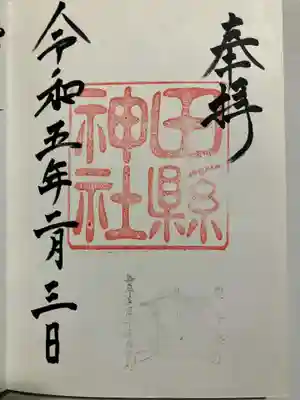 奉拝
田縣
神社
令和五年二月三日